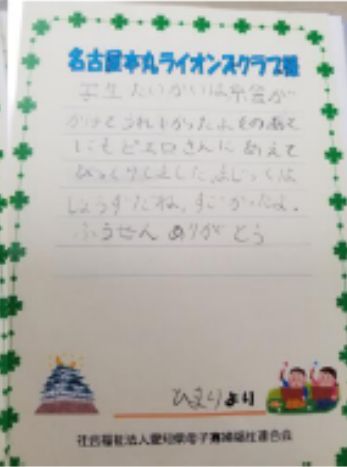 名古屋本丸ライオンズクラブ様
かってうれしかったよそのあと
にもピエロさんにあえて
びっくりしました。まじっくは
じょうずだね。すごかったよ。
ふうせんありがとう
ひまりより
社会福祉法人愛知県母子寡婦福祉連合会